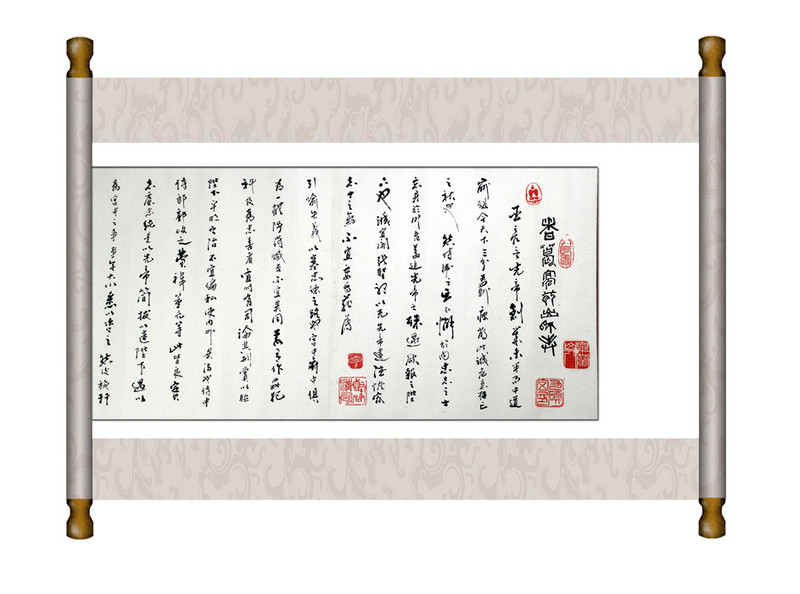 臣亮言先帝創業未半而中道
崩殂今天下三分益州疲弊此誠危急存亡
之秋也然侍衛之臣不懈於内忠志之士
忘身於外者蓋追先帝之殊遇欲報之陛
下也誠宜開張聖聽以光先帝遺德恢宏
志士之氣不宜妄自菲薄
引喻失義以塞忠諫之路也宮中府中俱
為一體陟罰臧否不宜異同若有作奸犯
科及為忠善者宜付有司論其刑賞以昭
陛下平明之治不宜偏私使内外異法也侍中
侍郎郭攸之費禕董允等此皆良實
志慮忠純是以先帝簡拔以遺陛下愚以
為宮中之事事無大小悉以咨之然後施行